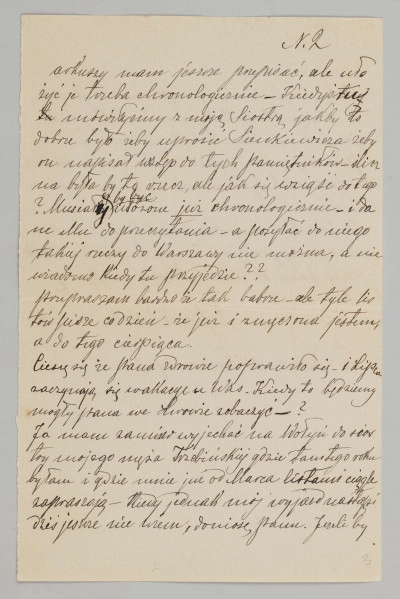 N. 2
arkuszy mam jeszcze przepisać, ale uło
żyć je trzeba chronologicznie – Kiedyś tu
mówiłyśmy z moją Siostrą jakby to
dobrze było żeby uprosić Sienkiewicza żeby
on napisał wstęp do tych pamiętników – ślicz
na byłaby to rzecz, ale jak się wziąść do tego
? Musiałyby być ułożone już chronologicznie – i da
ne Mu do przeczytania – a posyłać do niego
takiej rzeczy do Warszawy nie można, a nie
wiadomo kiedy tu przyjedzie ??
Przepraszam bardzo że tak bazrze – ale tyle lis
tów piszę codzień – że już i zmęczona jestem
a do tego cierpiąca.
Cieszę się że Pana zdrowie poprawiło się – i
zaczynają się wakacye u Was. Kiedy to będziemy
mogły Pana we Lwowie zobaczyć – ?
Ja mam zamiar wyjechać na Wołyń do sios
try mojego męża gdzie tamtego roku
byłam i gdzie mnie już od Marca listami ciągle
zapraszają – Kiedy jednak mój wyjazd nastąpi
dziś jeszcze nie wiem, doniosę Panu. Jeśli by